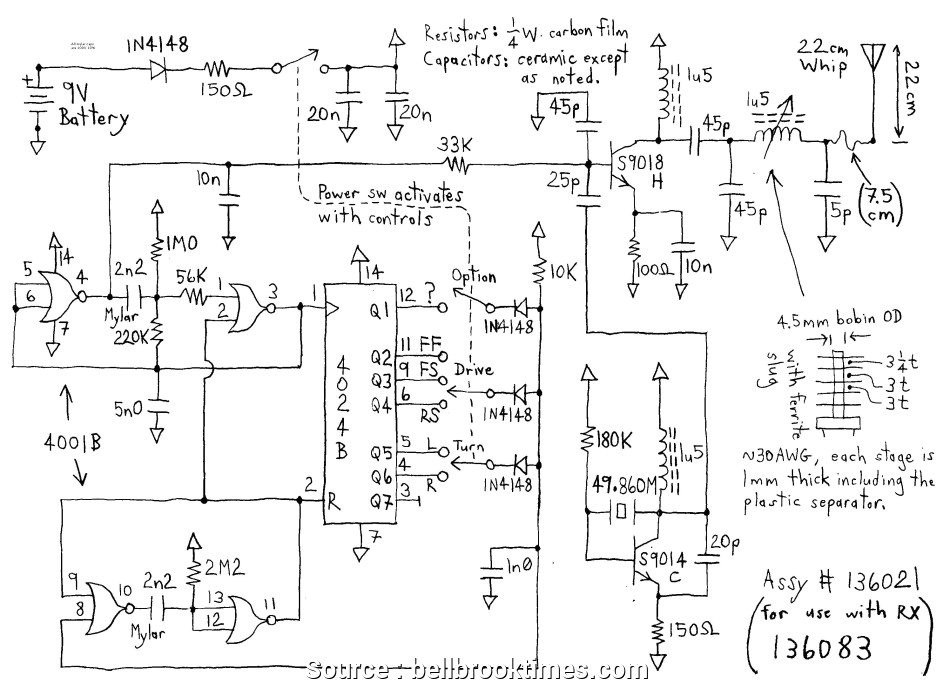 1N4148
150Ω
+
9V
Battery
20n
20n
Resistors: 1/4 W. carbon film
Capacitors: ceramic except
as noted.
45p
1u5
45p
1u5
22cm
Whip
22cm
33K
10n
25p
S9018
H
45p
5p
(7.5
cm)
Power sw activates
with controls
100Ω
10n
14
1M0
5
6
4
7
2n2
Mylar
56K
220K
1
2
3
5n0
4001B
1
14
4024B
Q1
12 ?
Option
1N4148
10K
Q2
11 FF
Q3
9 FS
Drive
Q4
6
RS
1N4148
Q5
5 L
Turn
Q6
4
R
1N4148
Q7
3
2
R
7
4.5mm bobin OD
with Ferrite
slug
3 1/4 t
3t
3t
~30AWG, each stage is
1mm thick including the
plastic separator.
180K
1u5
49.860M
S9014
C
20p
150Ω
1n0
9
8
10
2n2
Mylar
2M2
13
12
11
Assy # 136021
(for use with RX
136083)
Source : bellbrooktimes.com